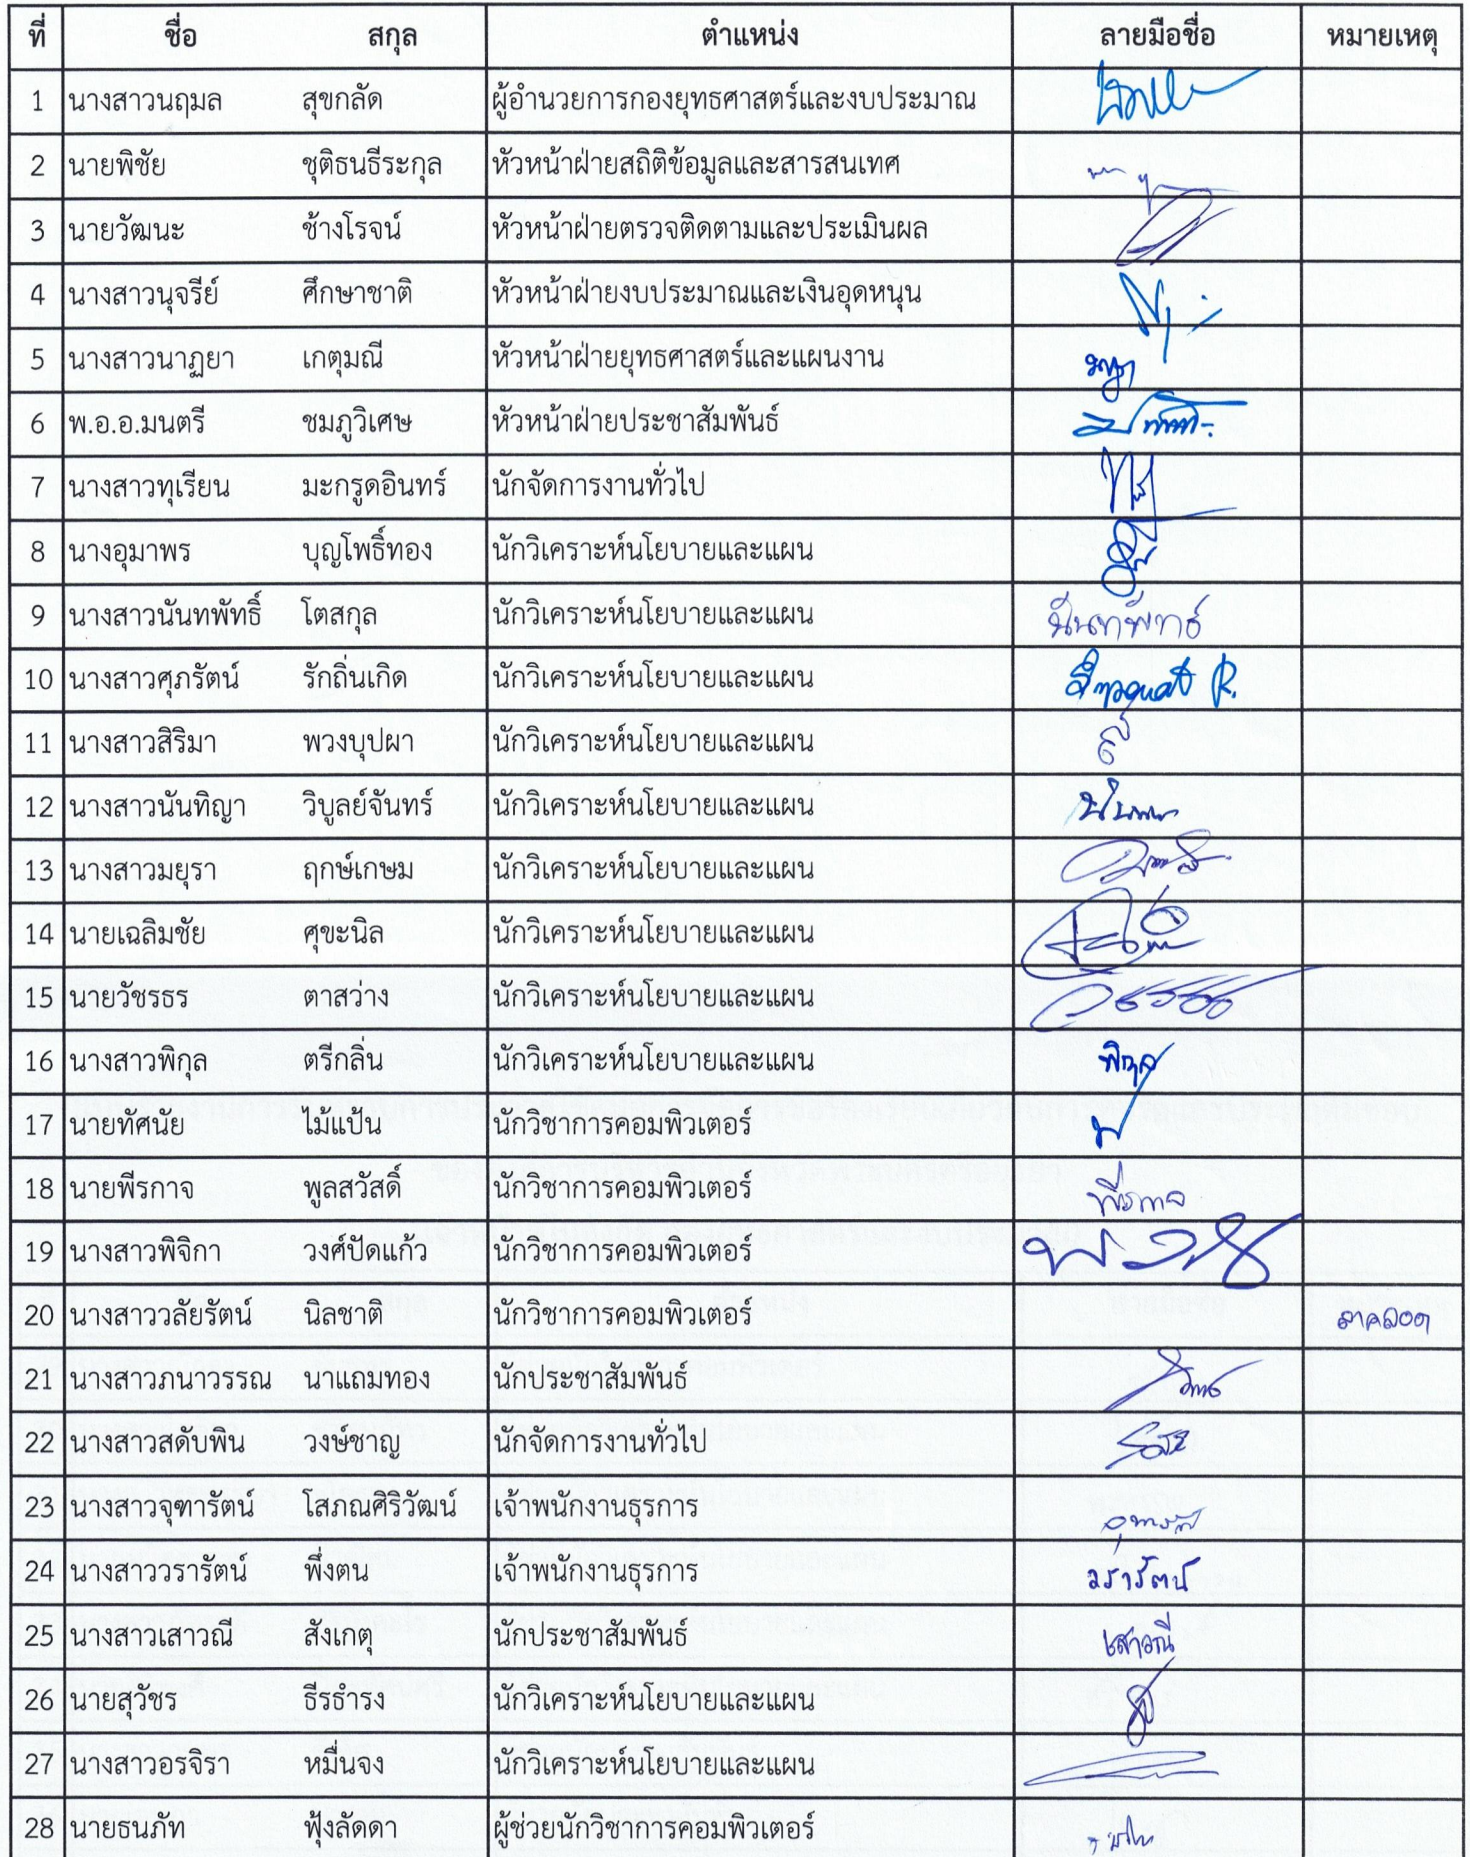 ที่ ชื่อ สกุล ตำแหน่ง ลายมือชื่อ หมายเหตุ
1 นางสาวนฤมล สุขกลัด ผู้อำนวยการกองยุทธศาสตร์และงบประมาณ
2 นายพิชัย ชุติธนธีระกุล หัวหน้าฝ่ายสถิติข้อมูลและสารสนเทศ
3 นายวัฒนะ ช้างโรจน์ หัวหน้าฝ่ายตรวจติดตามและประเมินผล
4 นางสาวนุจรีย์ ศึกษาชาติ หัวหน้าฝ่ายงบประมาณและเงินอุดหนุน
5 นางสาวนาฏยา เกตุมณี หัวหน้าฝ่ายยุทธศาสตร์และแผนงาน
6 พ.อ.อ.มนตรี ชมภูวิเศษ หัวหน้าฝ่ายประชาสัมพันธ์
7 นางสาวทุเรียน มะกรูดอินทร์ นักจัดการงานทั่วไป
8 นางอุมาพร บุญโพธิ์ทอง นักวิเคราะห์นโยบายและแผน
9 นางสาวนันทพัทธิ์ โตสกุล นักวิเคราะห์นโยบายและแผน นันทพัทธ์
10 นางสาวศุภรัตน์ รักถิ่นเกิด นักวิเคราะห์นโยบายและแผน
11 นางสาวสิริมา พวงบุปผา นักวิเคราะห์นโยบายและแผน
12 นางสาวนันทิญา วิบูลย์จันทร์ นักวิเคราะห์นโยบายและแผน
13 นางสาวมยุรา ฤกษ์เกษม นักวิเคราะห์นโยบายและแผน
14 นายเฉลิมชัย ศุขะนิล นักวิเคราะห์นโยบายและแผน
15 นายวัชรธร ตาสว่าง นักวิเคราะห์นโยบายและแผน
16 นางสาวพิกุล ตรีกลิ่น นักวิเคราะห์นโยบายและแผน พิกุล
17 นายทัศนัย ไม้แป้น นักวิชาการคอมพิวเตอร์
18 นายพีรกาจ พูลสวัสดิ์ นักวิชาการคอมพิวเตอร์ พีรกาจ
19 นางสาวพิจิกา วงศ์ปัดแก้ว นักวิชาการคอมพิวเตอร์
20 นางสาววลัยรัตน์ นิลชาติ นักวิชาการคอมพิวเตอร์ ลาคลอด
21 นางสาวภนาวรรณ นาแถมทอง นักประชาสัมพันธ์
22 นางสาวสดับพิน วงษ์ชาญ นักจัดการงานทั่วไป
23 นางสาวจุฑารัตน์ โสภณศิริวัฒน์ เจ้าพนักงานธุรการ
24 นางสาววรารัตน์ พึ่งตน เจ้าพนักงานธุรการ วรารัตน์
25 นางสาวเสาวณี สังเกตุ นักประชาสัมพันธ์ เสาวณี
26 นายสุวัชร ธีรธำรง นักวิเคราะห์นโยบายและแผน
27 นางสาวอรจิรา หมื่นจง นักวิเคราะห์นโยบายและแผน
28 นายธนภัท ฟุ้งลัดดา ผู้ช่วยนักวิชาการคอมพิวเตอร์